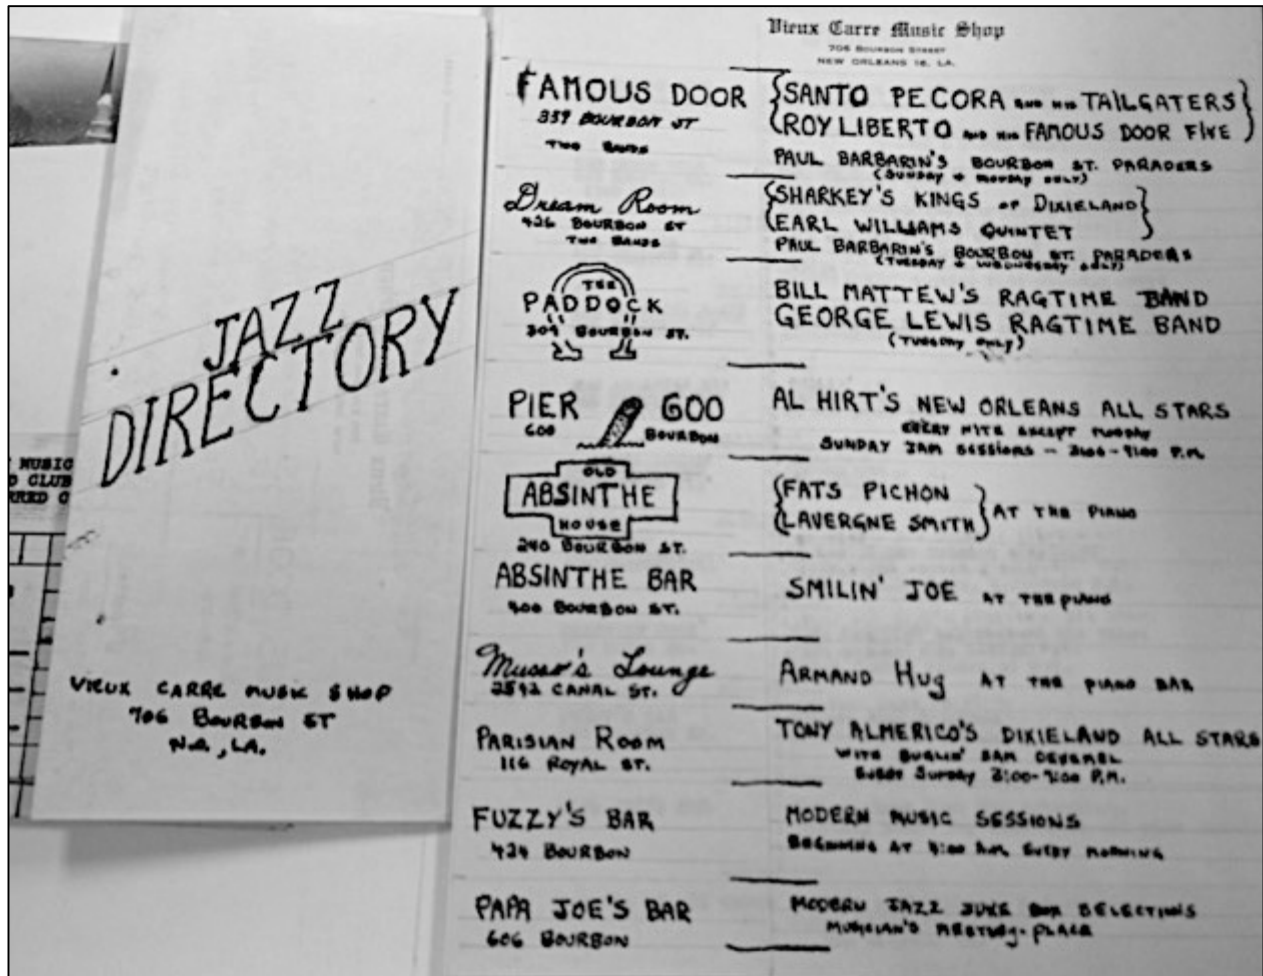 MUSIC
CLUB
JAZZ
DIRECTORY
VIEUX CARRE MUSIC SHOP
706 BOURBON ST
N.O., LA.
Vieux Carre Music Shop
706 BOURBON STREET
NEW ORLEANS 16, LA.
FAMOUS DOOR
339 BOURBON ST
TWO BANDS
{SANTO PECORA AND HIS TAILGATERS}
{ROY LIBERTO AND HIS FAMOUS DOOR FIVE}
PAUL BARBARIN'S BOURBON ST. PARADERS
(SUNDAY + MONDAY ONLY)
Dream Room
426 BOURBON ST
TWO BANDS
{SHARKEY'S KINGS OF DIXIELAND}
{EARL WILLIAMS QUINTET}
PAUL BARBARIN'S BOURBON ST. PARADERS
(TUESDAY + WEDNESDAY ONLY)
THE
PADDOCK
309 BOURBON ST.
BILL MATTEW'S RAGTIME BAND
GEORGE LEWIS RAGTIME BAND
(TUESDAY ONLY)
PIER 600
600 BOURBON
AL HIRT'S NEW ORLEANS ALL STARS
EVERY NITE EXCEPT TUESDAY
SUNDAY JAM SESSIONS - P.M.
OLD
ABSINTHE
HOUSE
240 BOURBON ST.
{FATS PICHON
LAVERGNE SMITH} AT THE PIANO
ABSINTHE BAR
400 BOURBON ST.
SMILIN' JOE AT THE PIANO
Musso's Lounge
2542 CANAL ST.
ARMAND HUG AT THE PIANO BAR
PARISIAN ROOM
116 ROYAL ST.
TONY ALMERICO'S DIXIELAND ALL STARS
WITH SAM
EVERY SUNDAY P.M.
FUZZY'S BAR
424 BOURBON
MODERN MUSIC SESSIONS
BEGINNING AT 4:00 A.M. EVERY MORNING
PAPA JOE'S BAR
606 BOURBON
MODERN JAZZ JUKE BOX SELECTIONS
MUSICIAN'S MEETING-PLACE